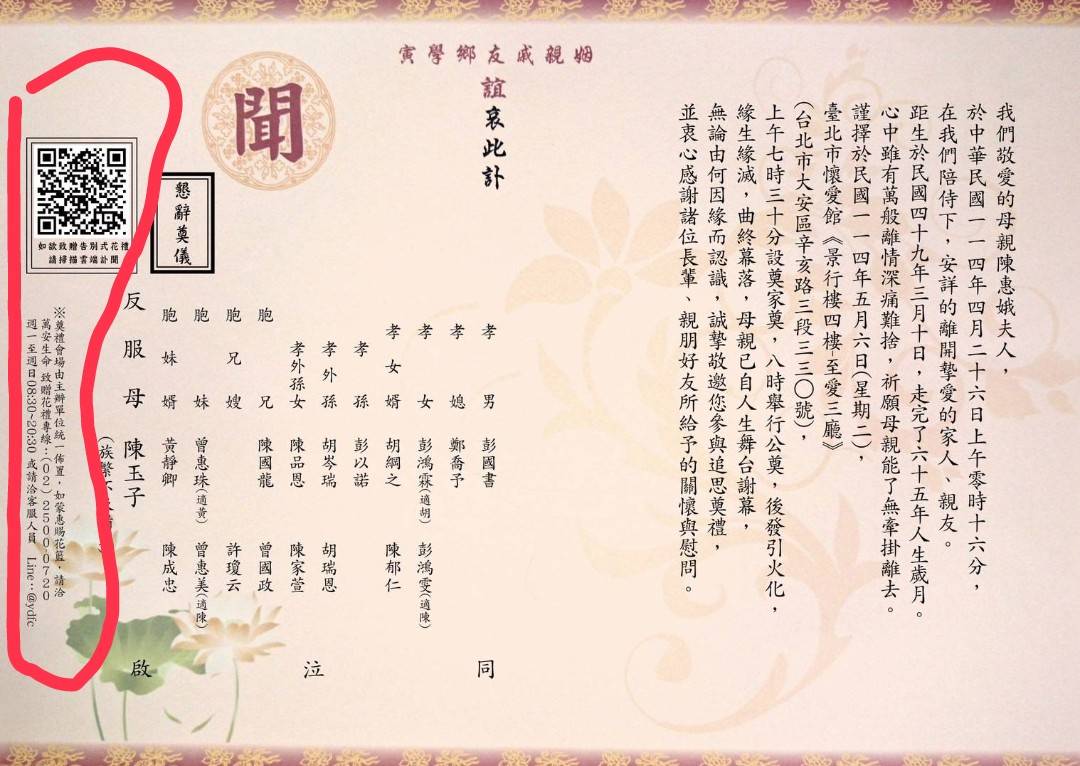 我們敬愛的母親陳惠娥夫人，
於中華民國一一四年四月二十六日上午零時十六分，
在我們陪侍下，安詳的離開摯愛的家人、親友。
距生於民國四十九年三月十日，走完了六十五年人生歲月。
心中雖有萬般離情深痛難捨，祈願母親能了無牽掛離去。
謹擇於民國一一四年五月六日(星期二)，
臺北市懷愛館《景行樓四樓-至愛三廳》
(台北市大安區辛亥路三段三三〇號)，
上午七時三十分設奠家奠，八時舉行公奠，後發引火化，
緣生緣滅，曲終幕落，母親已自人生舞台謝幕，
無論由何因緣而認識，誠摯敬邀您參與追思奠禮，
並衷心感謝諸位長輩、親朋好友所給予的關懷與慰問。
姻親戚友鄉學寅
誼哀此訃
聞
懇辭奠儀
孝男 彭國書
孝媳 鄭喬予
孝女 彭鴻霖(適胡) 彭鴻雯(適陳)
孝女婿 胡綱之 陳郁仁
孝孫 彭以諾
孝外孫 胡岑瑞 胡瑞恩
孝外孫女 陳品恩 陳家萱
胞兄 陳國龍 曾國政
胞兄嫂 許瓊云
胞妹 曾惠珠(適黃) 曾惠美(適陳)
胞妹婿 黃靜卿 陳成忠
反服母 陳玉子
(族繁
同泣啟
如欲致贈告別式花禮
請掃描雲端訃聞
※奠禮會場由主辦單位統一佈置，如蒙惠賜花籃，請洽
萬安生命 致贈花禮專線：(02)2500-0720
週一至週日08:30~20:30 或請洽客服人員 Line：@ydfc